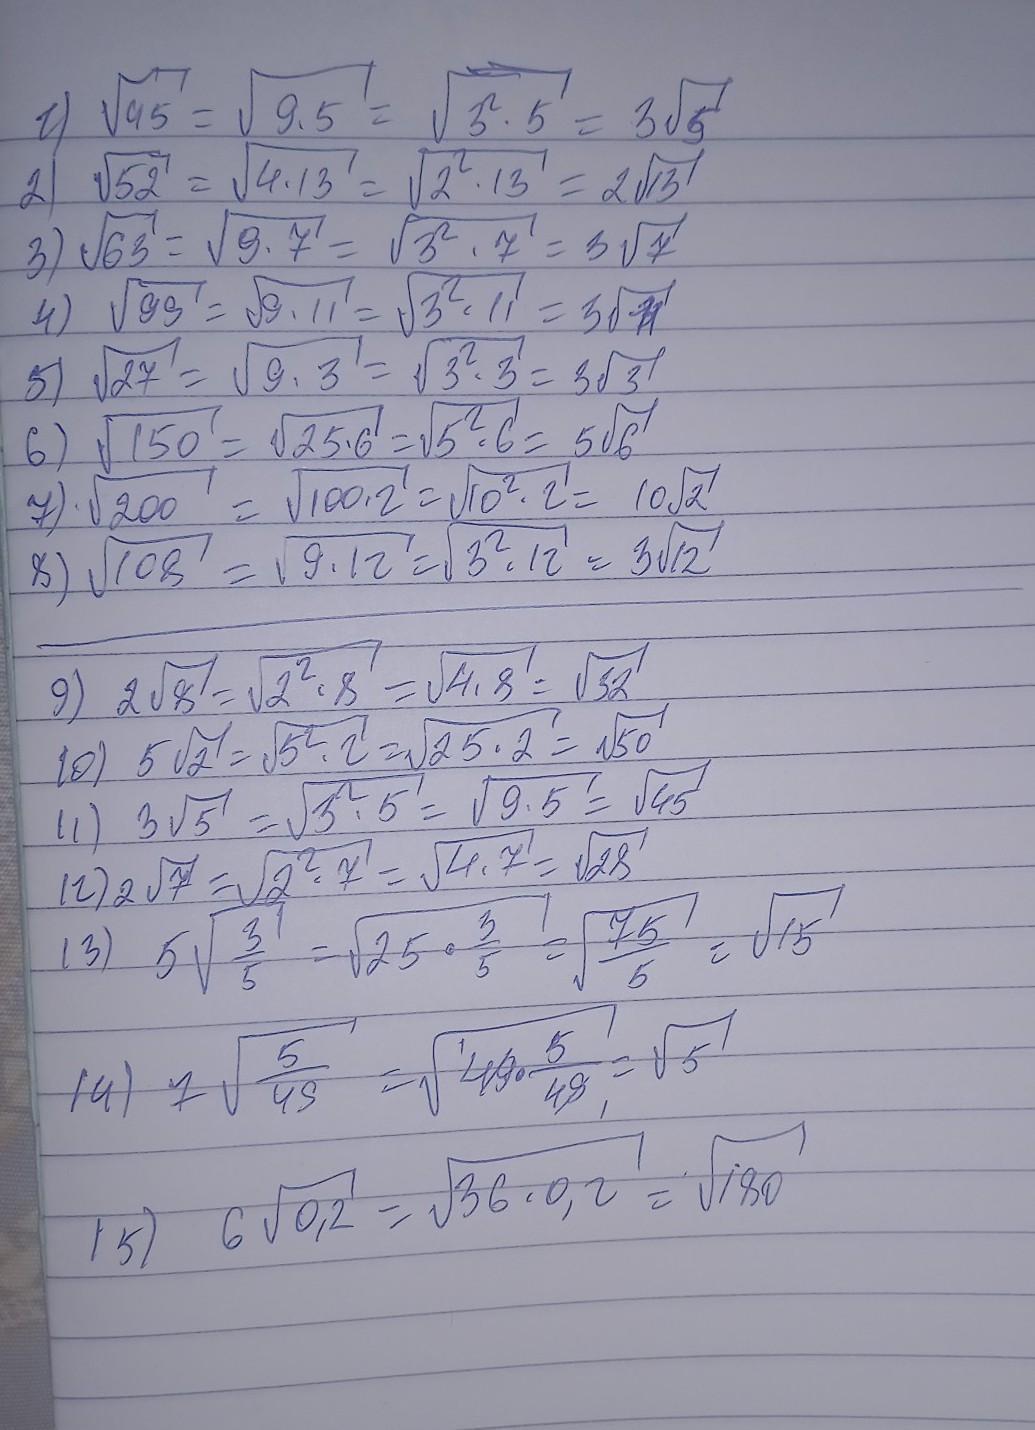 1) √45 = √9.5 = √3².5 = 3√5
2) √52 = √4.13 = √2².13 = 2√13
3) √63 = √9.7 = √3².7 = 3√7
4) √99 = √9.11 = √3².11 = 3√11
5) √27 = √9.3 = √3².3 = 3√3
6) √150 = √25.6 = √5².6 = 5√6
7) √200 = √100.2 = √10².2 = 10√2
8) √108 = √9.12 = √3².12 = 3√12
9) 2√8 = √2².8 = √4.8 = √32
10) 5√2 = √5².2 = √25.2 = √50
11) 3√5 = √3².5 = √9.5 = √45
12) 2√7 = √2².7 = √4.7 = √28
13) 5√3/5 = √25.3/5 = √75/5 = √15
14) 7√5/49 = √¹49.5/49₁ = √5
15) 6√0,2 = √36.0,2 = √180